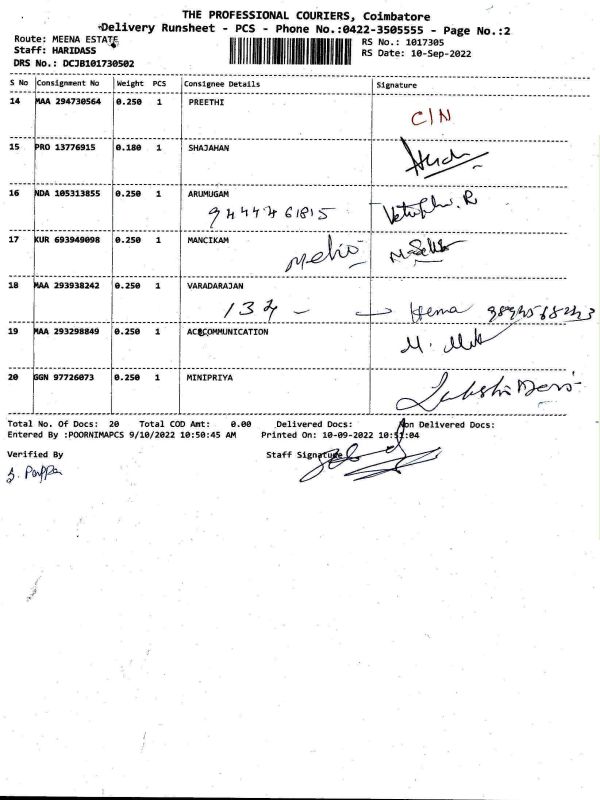 THE PROFESSIONAL COURIERS, Coimbatore
Delivery Runsheet - PCS - Phone No.:0422-3505555 - Page No.:2
Route: MEENA ESTATE
RS No.: 1017305
Staff: HARIDASS
RS Date: 10-Sep-2022
DRS No.: DCJB101730502
S No Consignment No Weight PCS Consignee Details Signature
14 MAA 294730564 0.250 1 PREETHI
C/N
15 PRO 13776915 0.180 1 SHAJAHAN
16 NDA 105313855 0.250 1 ARUMUGAM
9444461815
17 KUR 693949098 0.250 1 MANCIKAM
18 MAA 293938242 0.250 1 VARADARAJAN
Hema
19 MAA 293298849 0.250 1 ACECOMMUNICATION
20 GGN 97726073 0.250 1 MINIPRIYA
Total No. Of Docs: 20 Total COD Amt: 0.00 Delivered Docs: Non Delivered Docs:
Entered By :POORNIMAPCS 9/10/2022 10:50:45 AM Printed On: 10-09-2022 10:51:04
Verified By Staff Signature